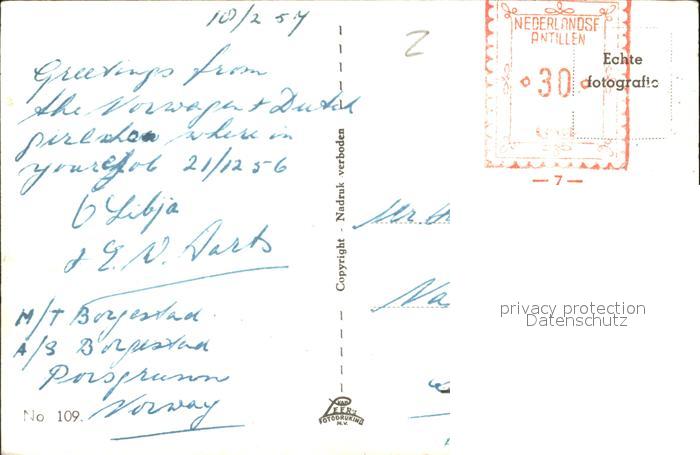 10/2 57
Greetings from
the Norwegen + Dutch
where in
your 21/12 56
Libja
+ E. V. Aarts
M/T Borgestad
A/S Borgestad
Porsgrunn
Norway
No 109.
Copyright - Nadruk verboden
VAN LEER'S
FOTODRUKIND.
N.V.
NEDERLANDSE
ANTILLEN
30
Echte
fotografie
— 7 —
Mr.
privacy protection
Datenschutz